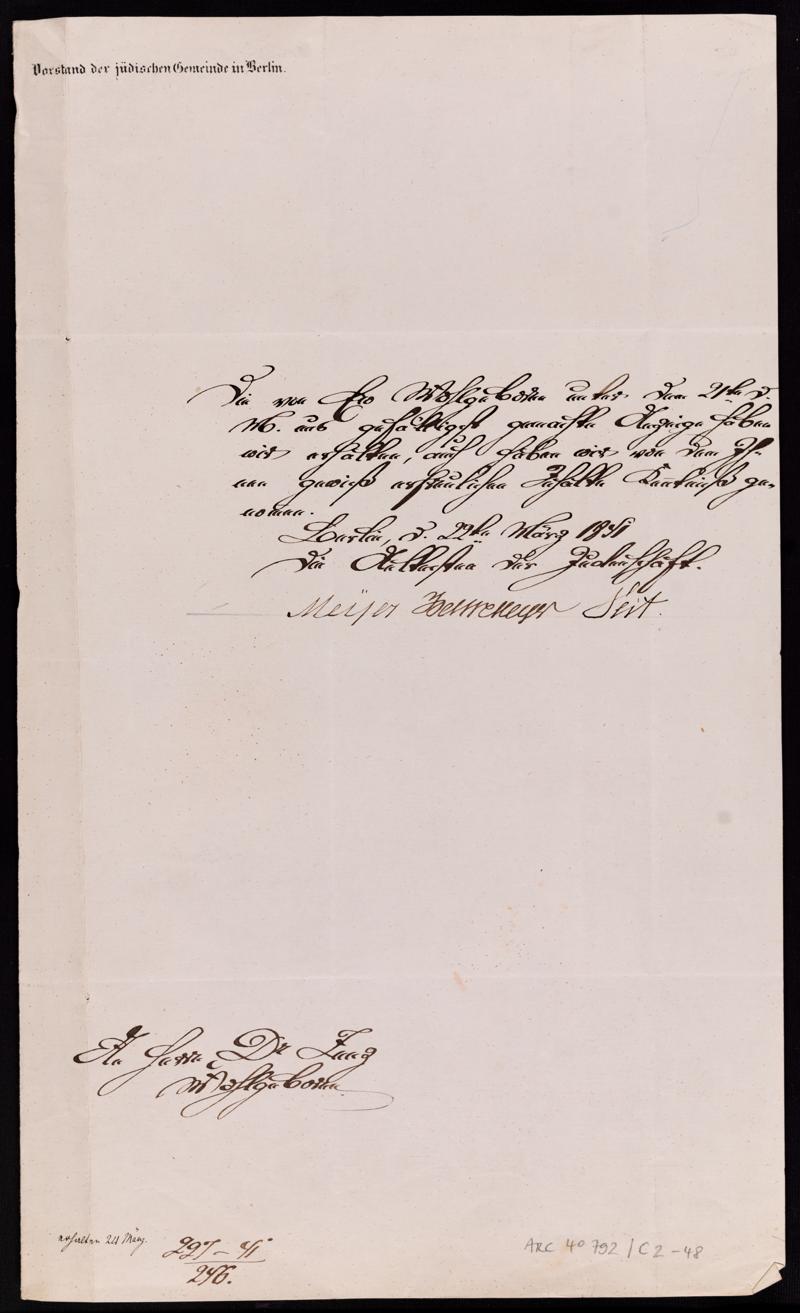 Vorstand der jüdischen Gemeinde in Berlin.
Die von Ew Wohlgeboren unter dem 21ten d.
M. uns gefälligst gemachte Anzeige haben
wir erhalten, auch haben wir von dem Ih-
nen gewiß erfreulichen Inhalte Kenntniß ge-
nomen.
Berlin, d. 22ten März 1851
Die Aeltesten der Judenschaft.
Meyer Veit
An Herrn Dr Zunz
Wohlgeboren
erhalten 24 März.
297 – 51
246.
ARC 4° 792 / C2-48